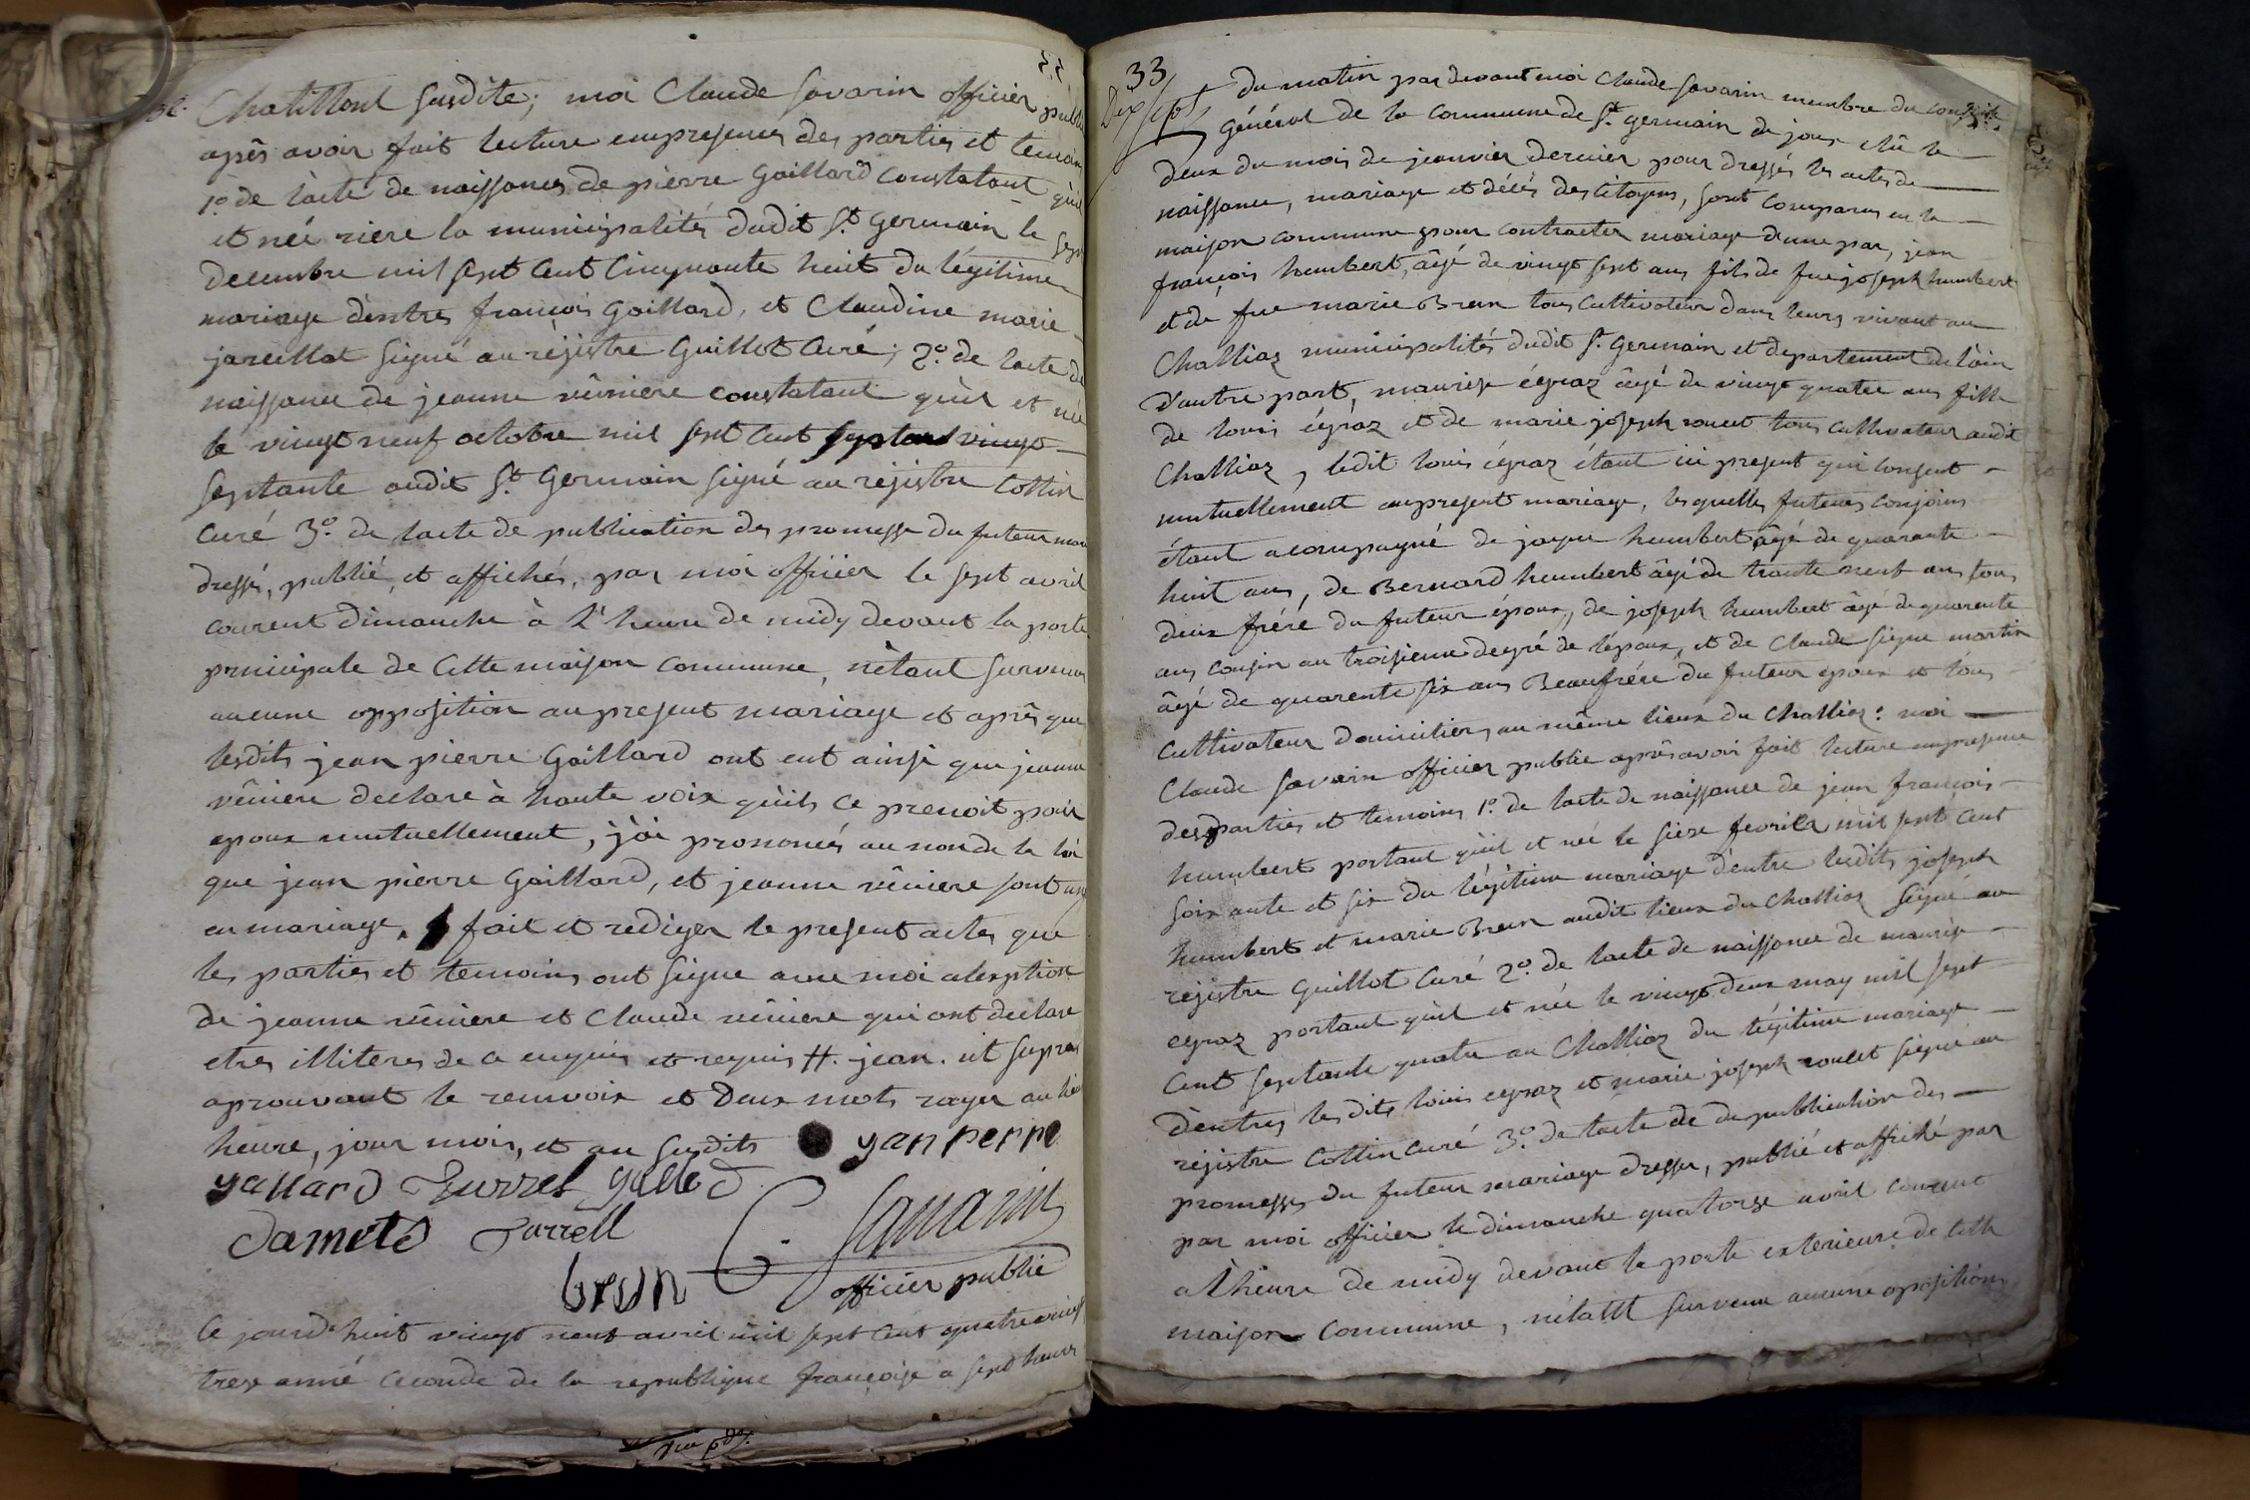 Chatillont susdite; moi Claude Savarin officier public
après avoir fait lecture enpresences des parties et temoins
1.º de l'acte de naissances de pierre Gaillard constatant qu'il
et née riere la municipalités dudit S.t Germain le sept
decembre mil sept cent cinquante huit du légitime
mariage d'entres françois Gaillard, et Claudine marie
jareillat signé au réjistre Guillot Curé; 2.º de lacte de
naissance de jeanne rêiniere constatant qu'el et née
le vingt neuf octobre mil sept cent vingt
septante audit S.t Germain signé au rejistre Cottin
Curé 3.º de lacte de publication des promesse du futeur
dressé, publié, et affichés, par moi officier le sept avril
courent dimanche à l'heure de midy devant la porte
principale de cette maison commune, n'étant survenus
aucune opposition aupresent mariage et après que
lesdits jean pierre Gaillard ont eut ainsi que jeanne
rêiniere declare à haute voix qu'ils ce prenoit pour
epoux mutuellement, j'ai prononcés au nom de la loi
que jean pierre Gaillard, et jeanne rêiniere sont unis
en mariage, fait et rediger le present actes que
les parties et temoins ont signe avec moi a lexption
de jeanne rêiniere et Claude rêiniere qui ont declare
etres illiteres de ce enquis et requis #. jean. ut supra
aprouvant le renvoix et deux mots rayer au
heure, jour mois, et an susdits yan perre
yallard Burret gallod
Damets Burrell C. Savarin
brun officier public
Ce jourd'huit vingt neuf avril mil sept cent quatre vingt
treze anné ceconde de la republique françoise a sept heures
33
Dix sept
du matin par devant moi Claude Savarin membre du conseil
Général de la commune de S.t germain de joux élû le
deux du mois de jeanvier dernier pour dressés les actes de
naissance, mariage et décés des citoyens, sont comparus en la
maison commune pour contracter mariage d'une par, jean
françois humbert, âgé de vingt sept ans fils de fue joseph humbert
et de fue marie Brun tous cultivateur dans leurs vivant au
Challiaz municipalités dudit S.t Germain et departement de l'ain
d'autre part, maurise égraz âgé de vingt quatre ans fille
de louis égraz et de marie joseph roulet tous cultivateur audit
Challiaz, ledit louis égraz étant ici present qui consent
mutuellement aupresent mariage, lesquelles futeurs conjoins
étant acompagné de jaque humbert âgé de quarante
huit ans, de Bernard humbert âgé de trante neuf ans tous
deux fréré du futeur époux, de joseph humbert âgé de quarente
ans cousin au troisieme degré de l'époux, et de Claude signe martin
âgé de quarente six ans Beaufréré du futeur epoux et tous
cultivateur domicilier au même lieux du Challiaz: moi
Claude Savarin officier public après avoir fait lecture enpresence
des parties et temoins 1.º de lacte de naissance de jean françois
humbert portant qu'il et née le sieze fevrier mil sept cent
soixante et six du légitime mariage d'entre lesdits joseph
humbert et marie Brun audit lieux du Challiaz signé au
rejistre Guillot Curé 2.º de lacte de naissance de maurise
egraz portant qu'el et née le vingt deux may mil sept
cent septante quatre au Challiaz du légitime mariage
d'entres lesdits louis egraz et marie joseph roulet signé au
réjistre Cottin curé 3.º de lacte de de publication des
promesses du futeur mariage dresser, publié et affiché par
par moi officier le dimanche quatorze avril courent
a l'heure de midy devant la porte exterieure de cette
maison commune, n'étant survenu aucune oposition